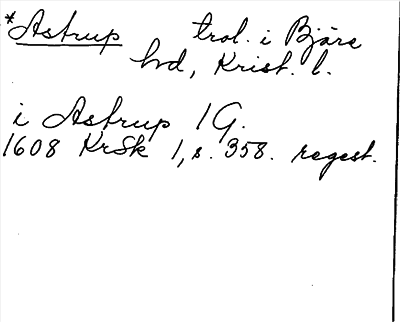 *Astrup trol. i Bjäre
hd, Krist. l.
i Astrup 1 G.
1608 KrSk 1, s. 358. regest.